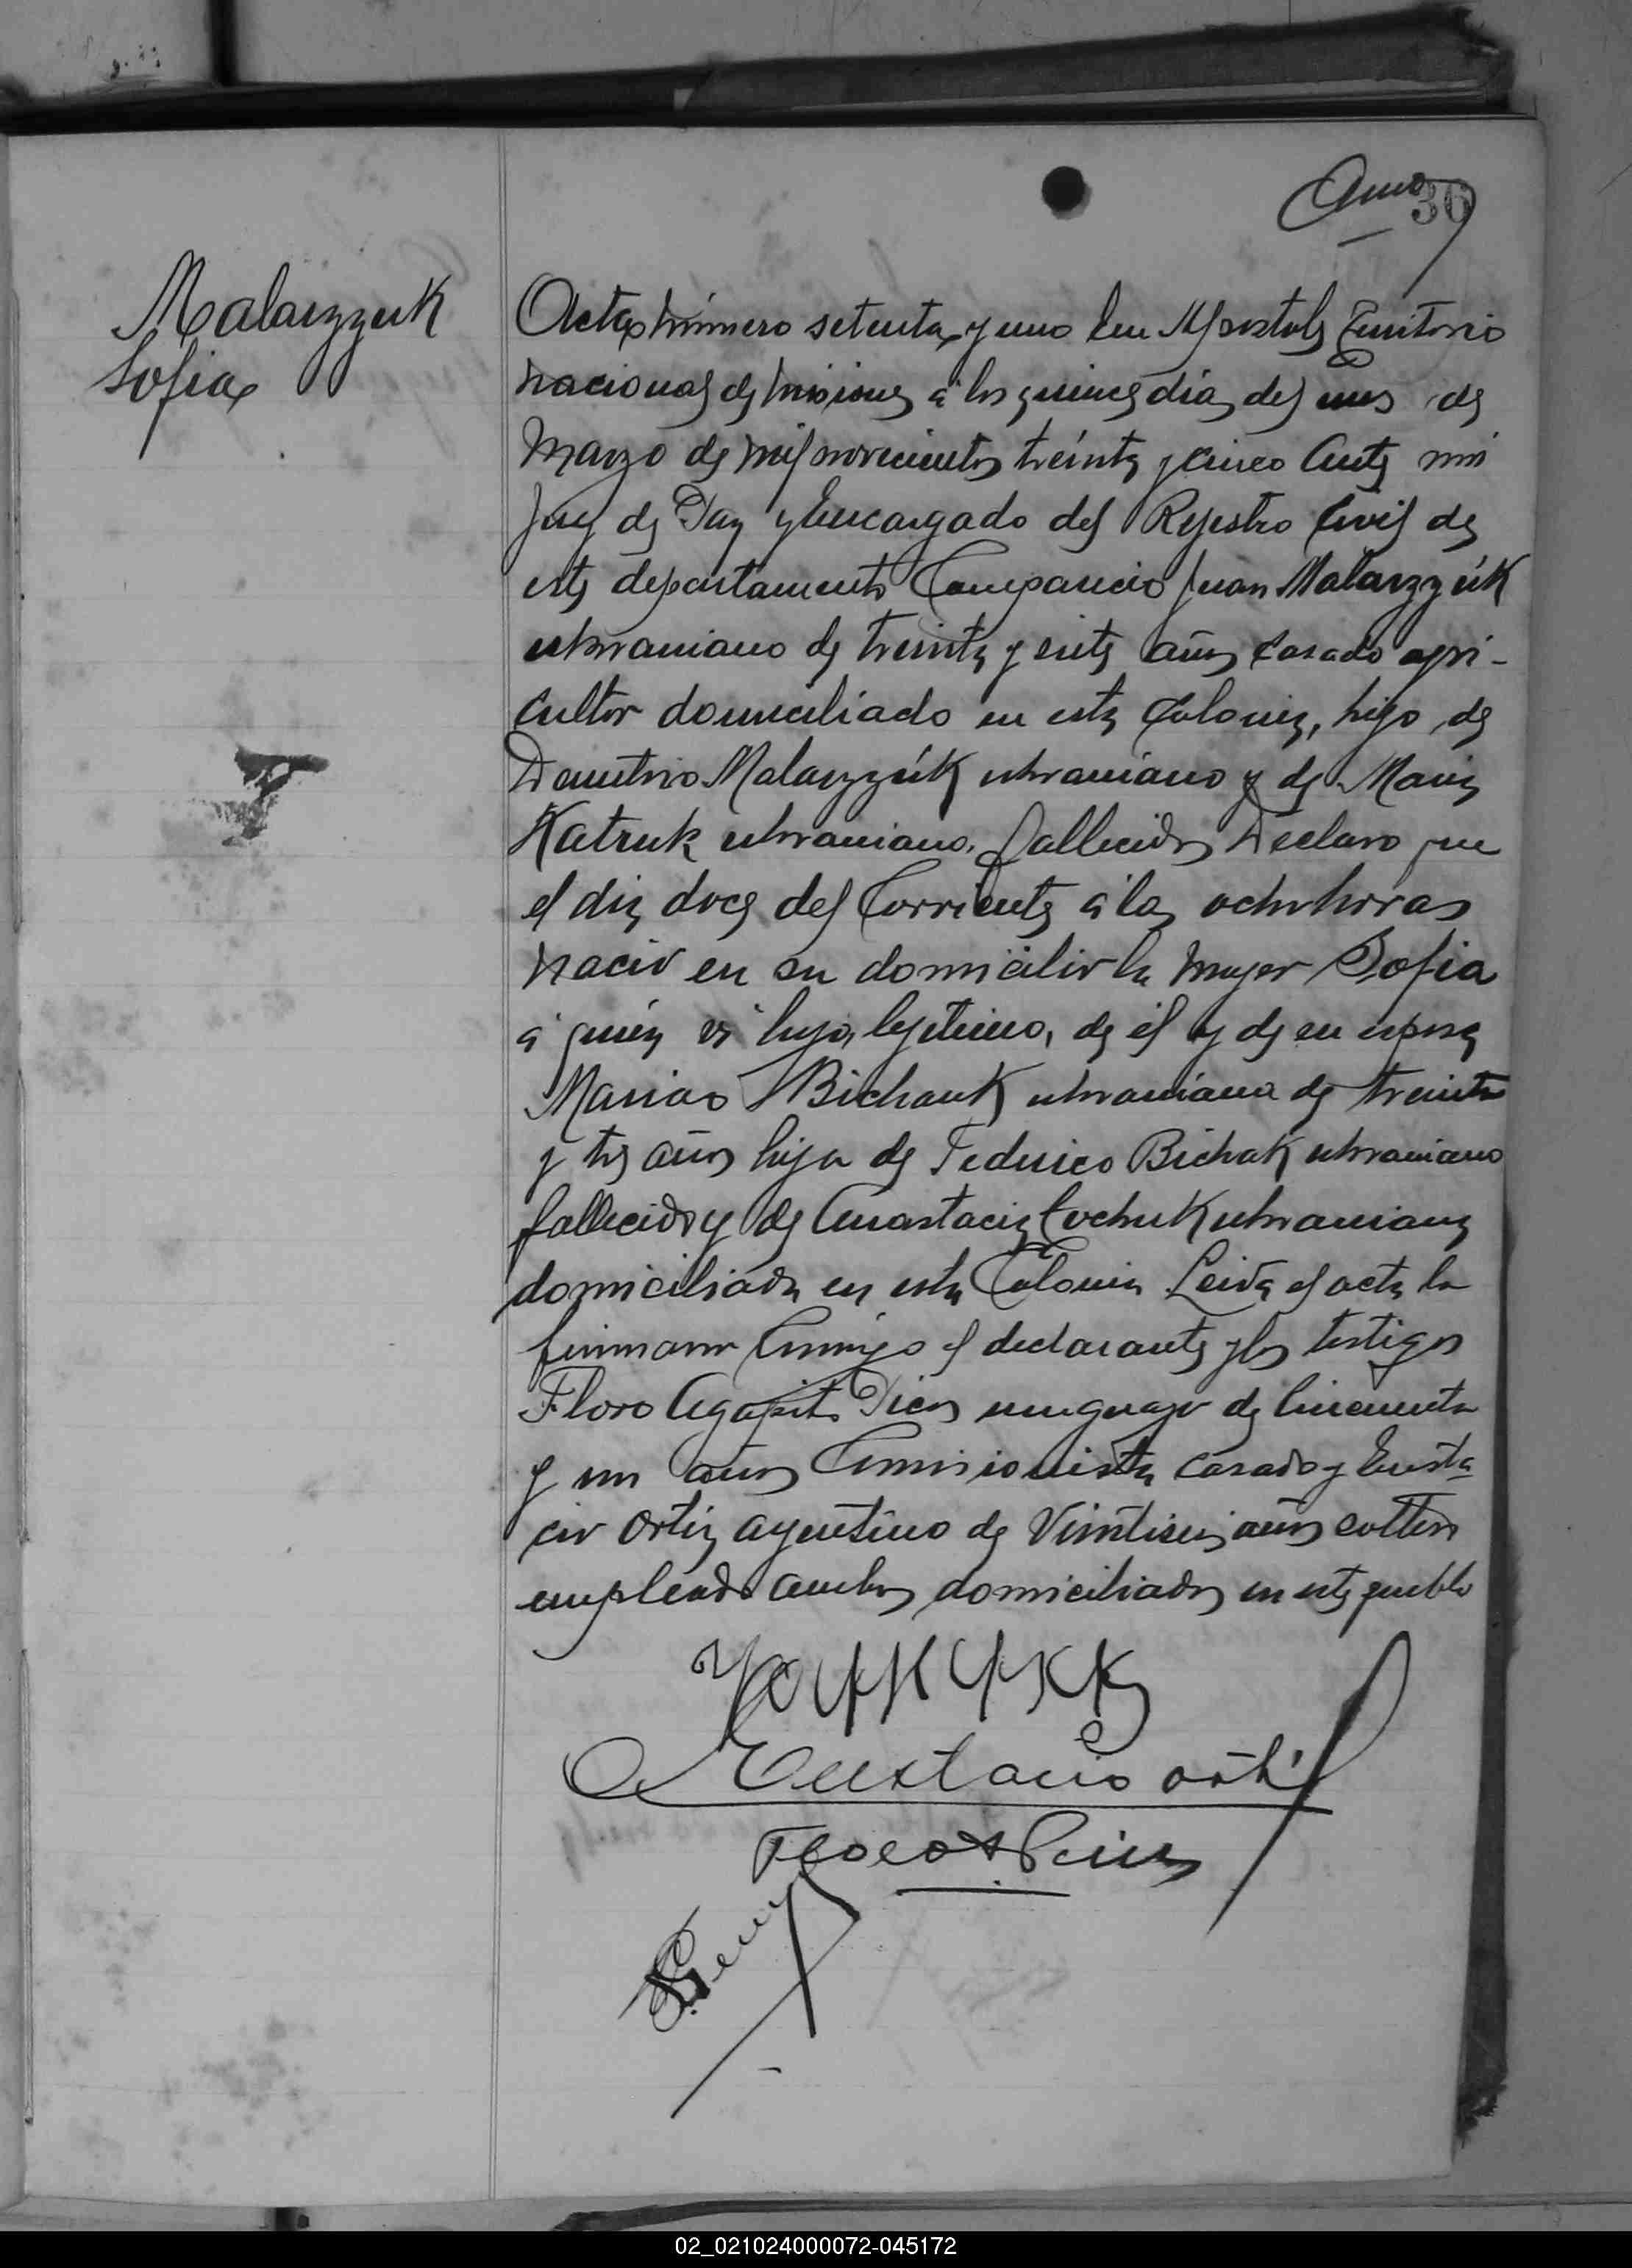 36
Malarzzuk
Sofia
Acta número setenta y uno En Apostoles Territorio
nacional de Misiones á los quince días del mes de
Marzo de mil novecientos treinta y cinco Ante mi
Juez de Paz y Encargado del Rejistro Civil de
este departamento Comparecio Juan Malarzzúk
ukraniano de treinta y siete años casado agri-
cultor domiciliado en esta Colonia, hijo de
Demetrio Malarzzúk ukraniano y de Maria
Katruk ukraniana. fallecidos Declaro que
el dia doce del Corriente á las ocho horas
nació en su domicilio la mujer Sofia
á quien vi hija lejitima, de él y de su esposa
Maria Bichauk ukraniana de treinta
y tres años hija de Federico Bichak ukraniano
fallecido y de Anastacia Cochuk ukraniana
domiciliada en esta Colonia Leida el acta la
firmaron Conmigo el declarante y los testigos
Floro Agapito uruguayo de Cincuenta
y un años Comisionista casado y Eusta
cio Ortiz argentino de Veintiseis años soltero
empleado ambos domiciliados en este pueblo
Eustacio Orti